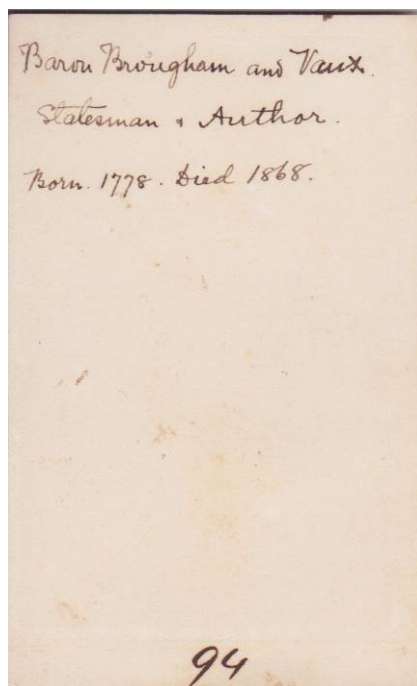 Baron Brougham and Vaux.
Statesman & Author.
Born. 1778. Died 1868.
94